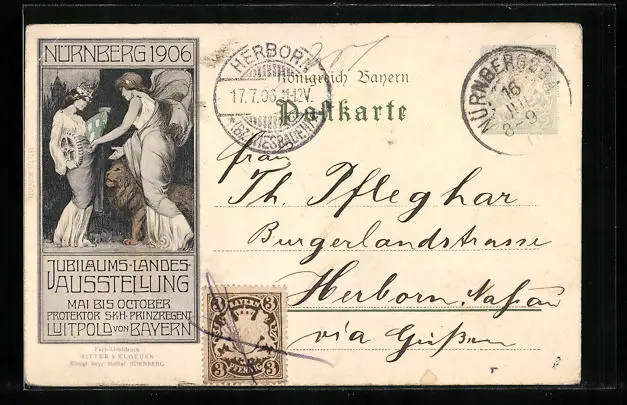 NÜRNBERG 1906
JUBILÄUMS-LANDES-
AUSSTELLUNG
MAI BIS OCTOBER
PROTEKTOR S.K.H. PRINZREGENT
LUITPOLD VON BAYERN
RITTER & KLOEDEN
NÜRNBERG
HERBORN
17.7.06 11-12V.
(BZ. WIESBADEN)
Königreich Bayern
Postkarte
NÜRNBERG
16
JUL
8-9
Frau
Th. Pfleghar
Burgerlandstrasse
Herborn, Nassau
via Gießen
3 BAYERN 3
3 PFENNIG 3